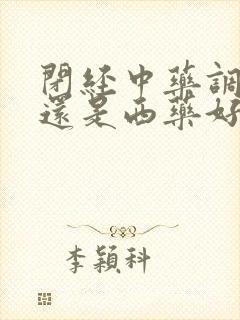 閉經中藥調
還是西藥好
李穎科